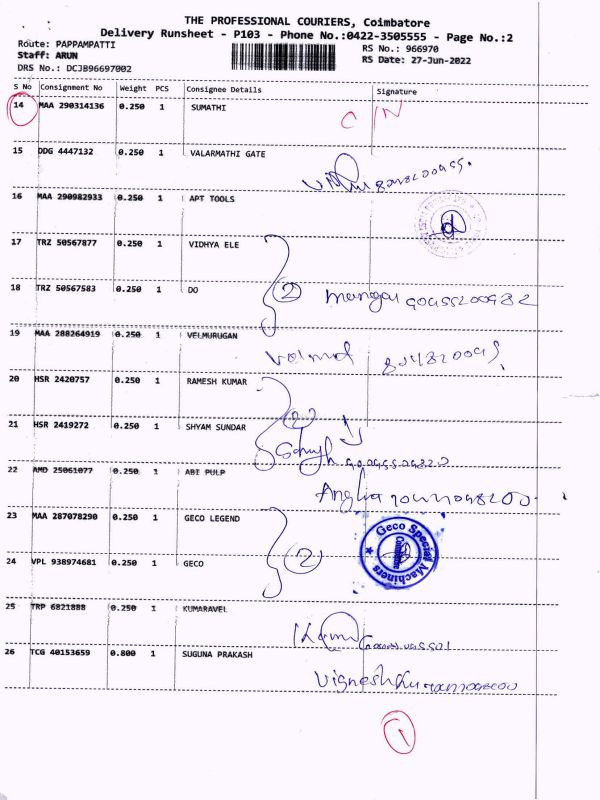 THE PROFESSIONAL COURIERS, Coimbatore
Delivery Runsheet - P103 - Phone No.:0422-3505555 - Page No.:2
Route: PAPPAMPATTI RS No.: 966970
Staff: ARUN RS Date: 27-Jun-2022
DRS No.: DCJB96697002
S No Consignment No Weight PCS Consignee Details Signature
14 MAA 290314136 0.250 1 SUMATHI
C/N
15 DDG 4447132 0.250 1 VALARMATHI GATE
16 MAA 290982933 0.250 1 APT TOOLS
17 TRZ 50567877 0.250 1 VIDHYA ELE
18 TRZ 50567583 0.250 1 DO
2
19 MAA 288264919 0.250 1 VELMURUGAN
20 HSR 2420757 0.250 1 RAMESH KUMAR
21 HSR 2419272 0.250 1 SHYAM SUNDAR
2
22 AMD 25061077 0.250 1 ABI PULP
23 MAA 287078290 0.250 1 GECO LEGEND
Geco Special Machines
Coimbatore
24 VPL 938974681 0.250 1 GECO
2
25 TRP 6821888 0.250 1 KUMARAVEL
26 TCG 40153659 0.800 1 SUGUNA PRAKASH
1